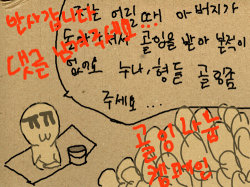 저는 어릴때 아버지가
돌아가셔서 골잉을 받아 본적이
없어요 누나, 형들 골잉좀
주세요...
반사갑니다
댓글 남겨주세요
골잉나눔
캠페인